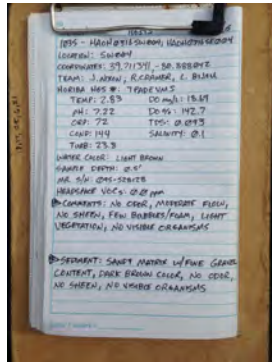 1035 - HAOH0316SW004, HAOH0316SE004
LOCATION: SW004
COORDINATES: 39.711341, -80.888042
TEAM: J. NIXON, R. CRAMER, C. BIJOU
HORIBA MOS #: TPADEVM5
TEMP: 2.83 DO mg/L: 18.69
pH: 7.22 DO %: 142.7
ORP: 72 TDS: 0.093
COND: 144 SALINITY: 0.1
TURB: 23.8
WATER COLOR: LIGHT BROWN
SAMPLE DEPTH: 0.5'
MR S/N: 095-528128
HEADSPACE VOCs: 0.0 ppm
COMMENTS: NO ODOR, MODERATE FLOW,
NO SHEEN, FEW BUBBLES/FOAM, LIGHT
VEGETATION, NO VISIBLE ORGANISMS
SEDIMENT: SANDY MATRIX W/ FINE GRAVEL
CONTENT, DARK BROWN COLOR, NO ODOR,
NO SHEEN, NO VISIBLE ORGANISMS